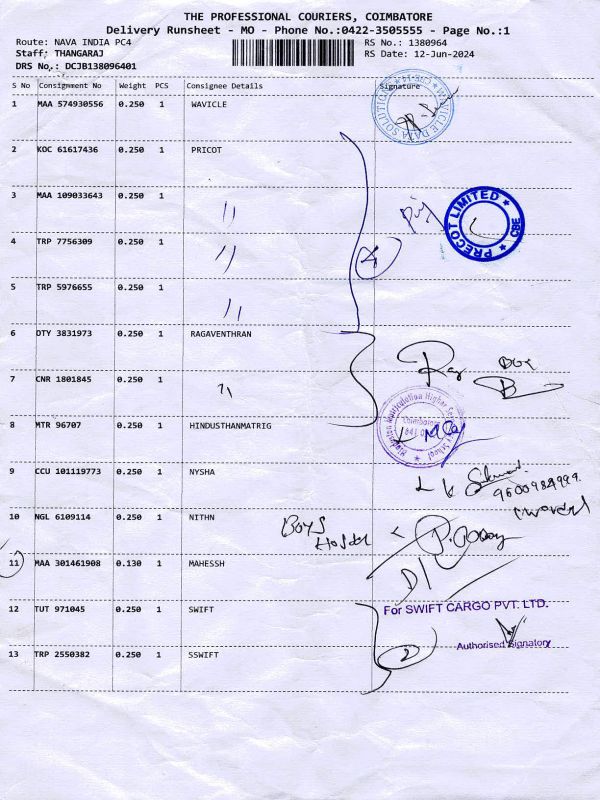 THE PROFESSIONAL COURIERS, COIMBATORE
Delivery Runsheet - MO - Phone No.:0422-3505555 - Page No.:1
Route: NAVA INDIA PC4 RS No.: 1380964
Staff: THANGARAJ RS Date: 12-Jun-2024
DRS No.: DCJB138096401
S No Consignment No Weight PCS Consignee Details Signature
1 MAA 574930556 0.250 1 WAVICLE
2 KOC 61617436 0.250 1 PRICOT
3 MAA 109033643 0.250 1 〃
PRECOT LIMITED ★ CBE ★
4 TRP 7756309 0.250 1 〃 4
5 TRP 5976655 0.250 1 〃
6 DTY 3831973 0.250 1 RAGAVENTHRAN
7 CNR 1801845 0.250 1 〃
8 MTR 96707 0.250 1 HINDUSTHANMATRIG
9 CCU 101119773 0.250 1 NYSHA
10 NGL 6109114 0.250 1 NITHN Boys
Hostel
11 MAA 301461908 0.130 1 MAHESSH D/L
12 TUT 971045 0.250 1 SWIFT For SWIFT CARGO PVT. LTD.
Authorised Signatory
13 TRP 2550382 0.250 1 SSWIFT 2